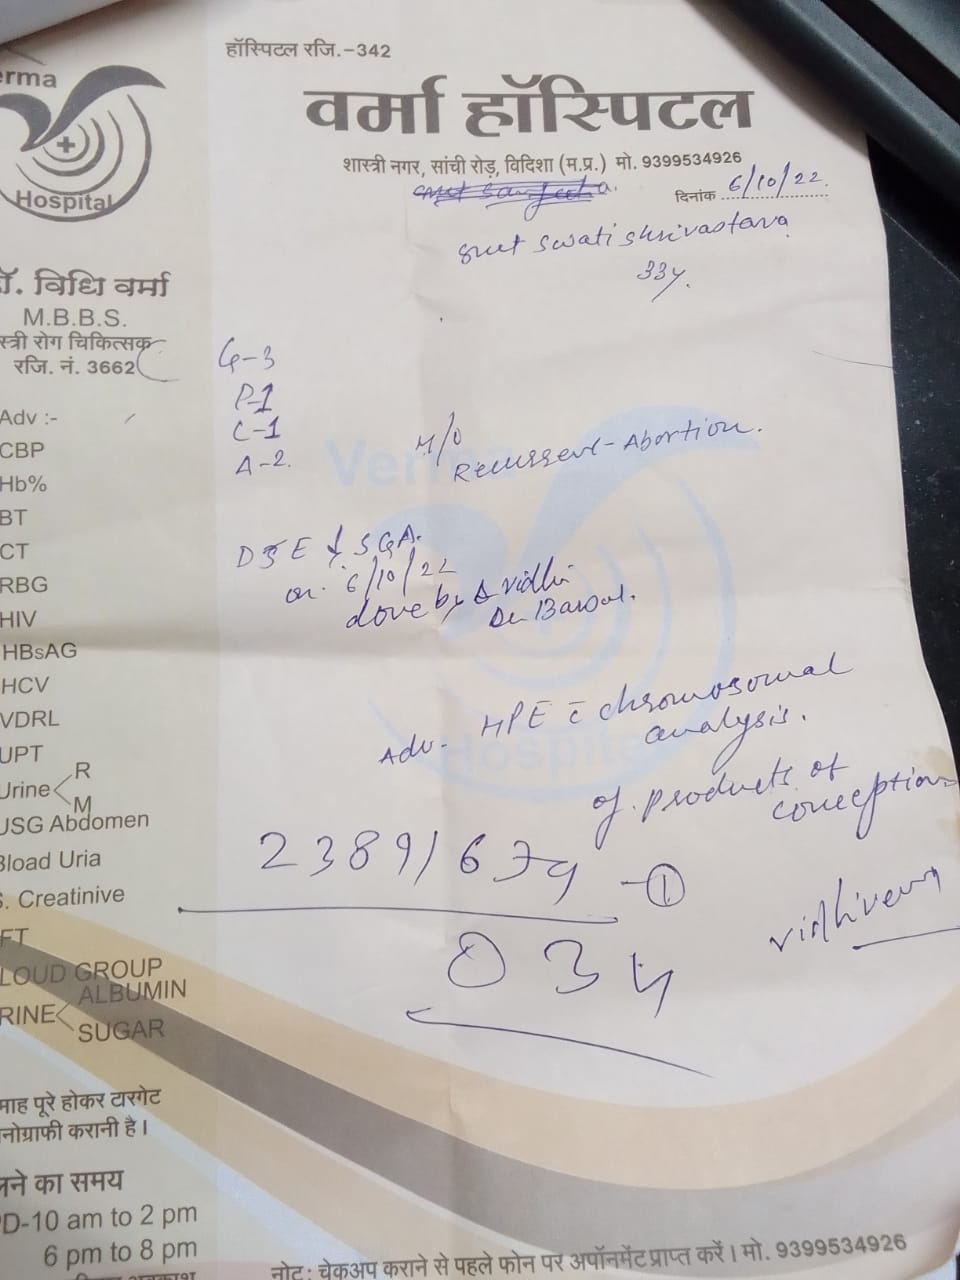 हॉस्पिटल रजि.-342
erma
Hospital
वर्मा हॉस्पिटल
शास्त्री नगर, सांची रोड़, विदिशा (म.प्र.) मो. 9399534926
दिनांक 6/10/22.
Smt Swati Shrivastava
33y.
डॉ. विधि वर्मा
M.B.B.S.
स्त्री रोग चिकित्सक
रजि. नं. 3662
G-3
P-1
L-1
A-2.
H/O
Recurrent-Abortion.
D&E SGA.
on. 6/10/22
done by Dr vidhi
Adv- HPE c̄ chromosomal
analysis.
of. products of
conception
23891/679 -①
034
vidhiverma
Adv :-
CBP
Hb%
BT
CT
RBG
HIV
HBsAG
HCV
VDRL
UPT
Urine < R
M
USG Abdomen
Bload Uria
S. Creatinive
FT
LOUD GROUP
RINE < ALBUMIN
SUGAR
माह पूरे होकर टारगेट
नोग्राफी करानी है।
लने का समय
PD-10 am to 2 pm
6 pm to 8 pm
नोट: चेकअप कराने से पहले फोन पर अपॉनमेंट प्राप्त करें। मो. 9399534926